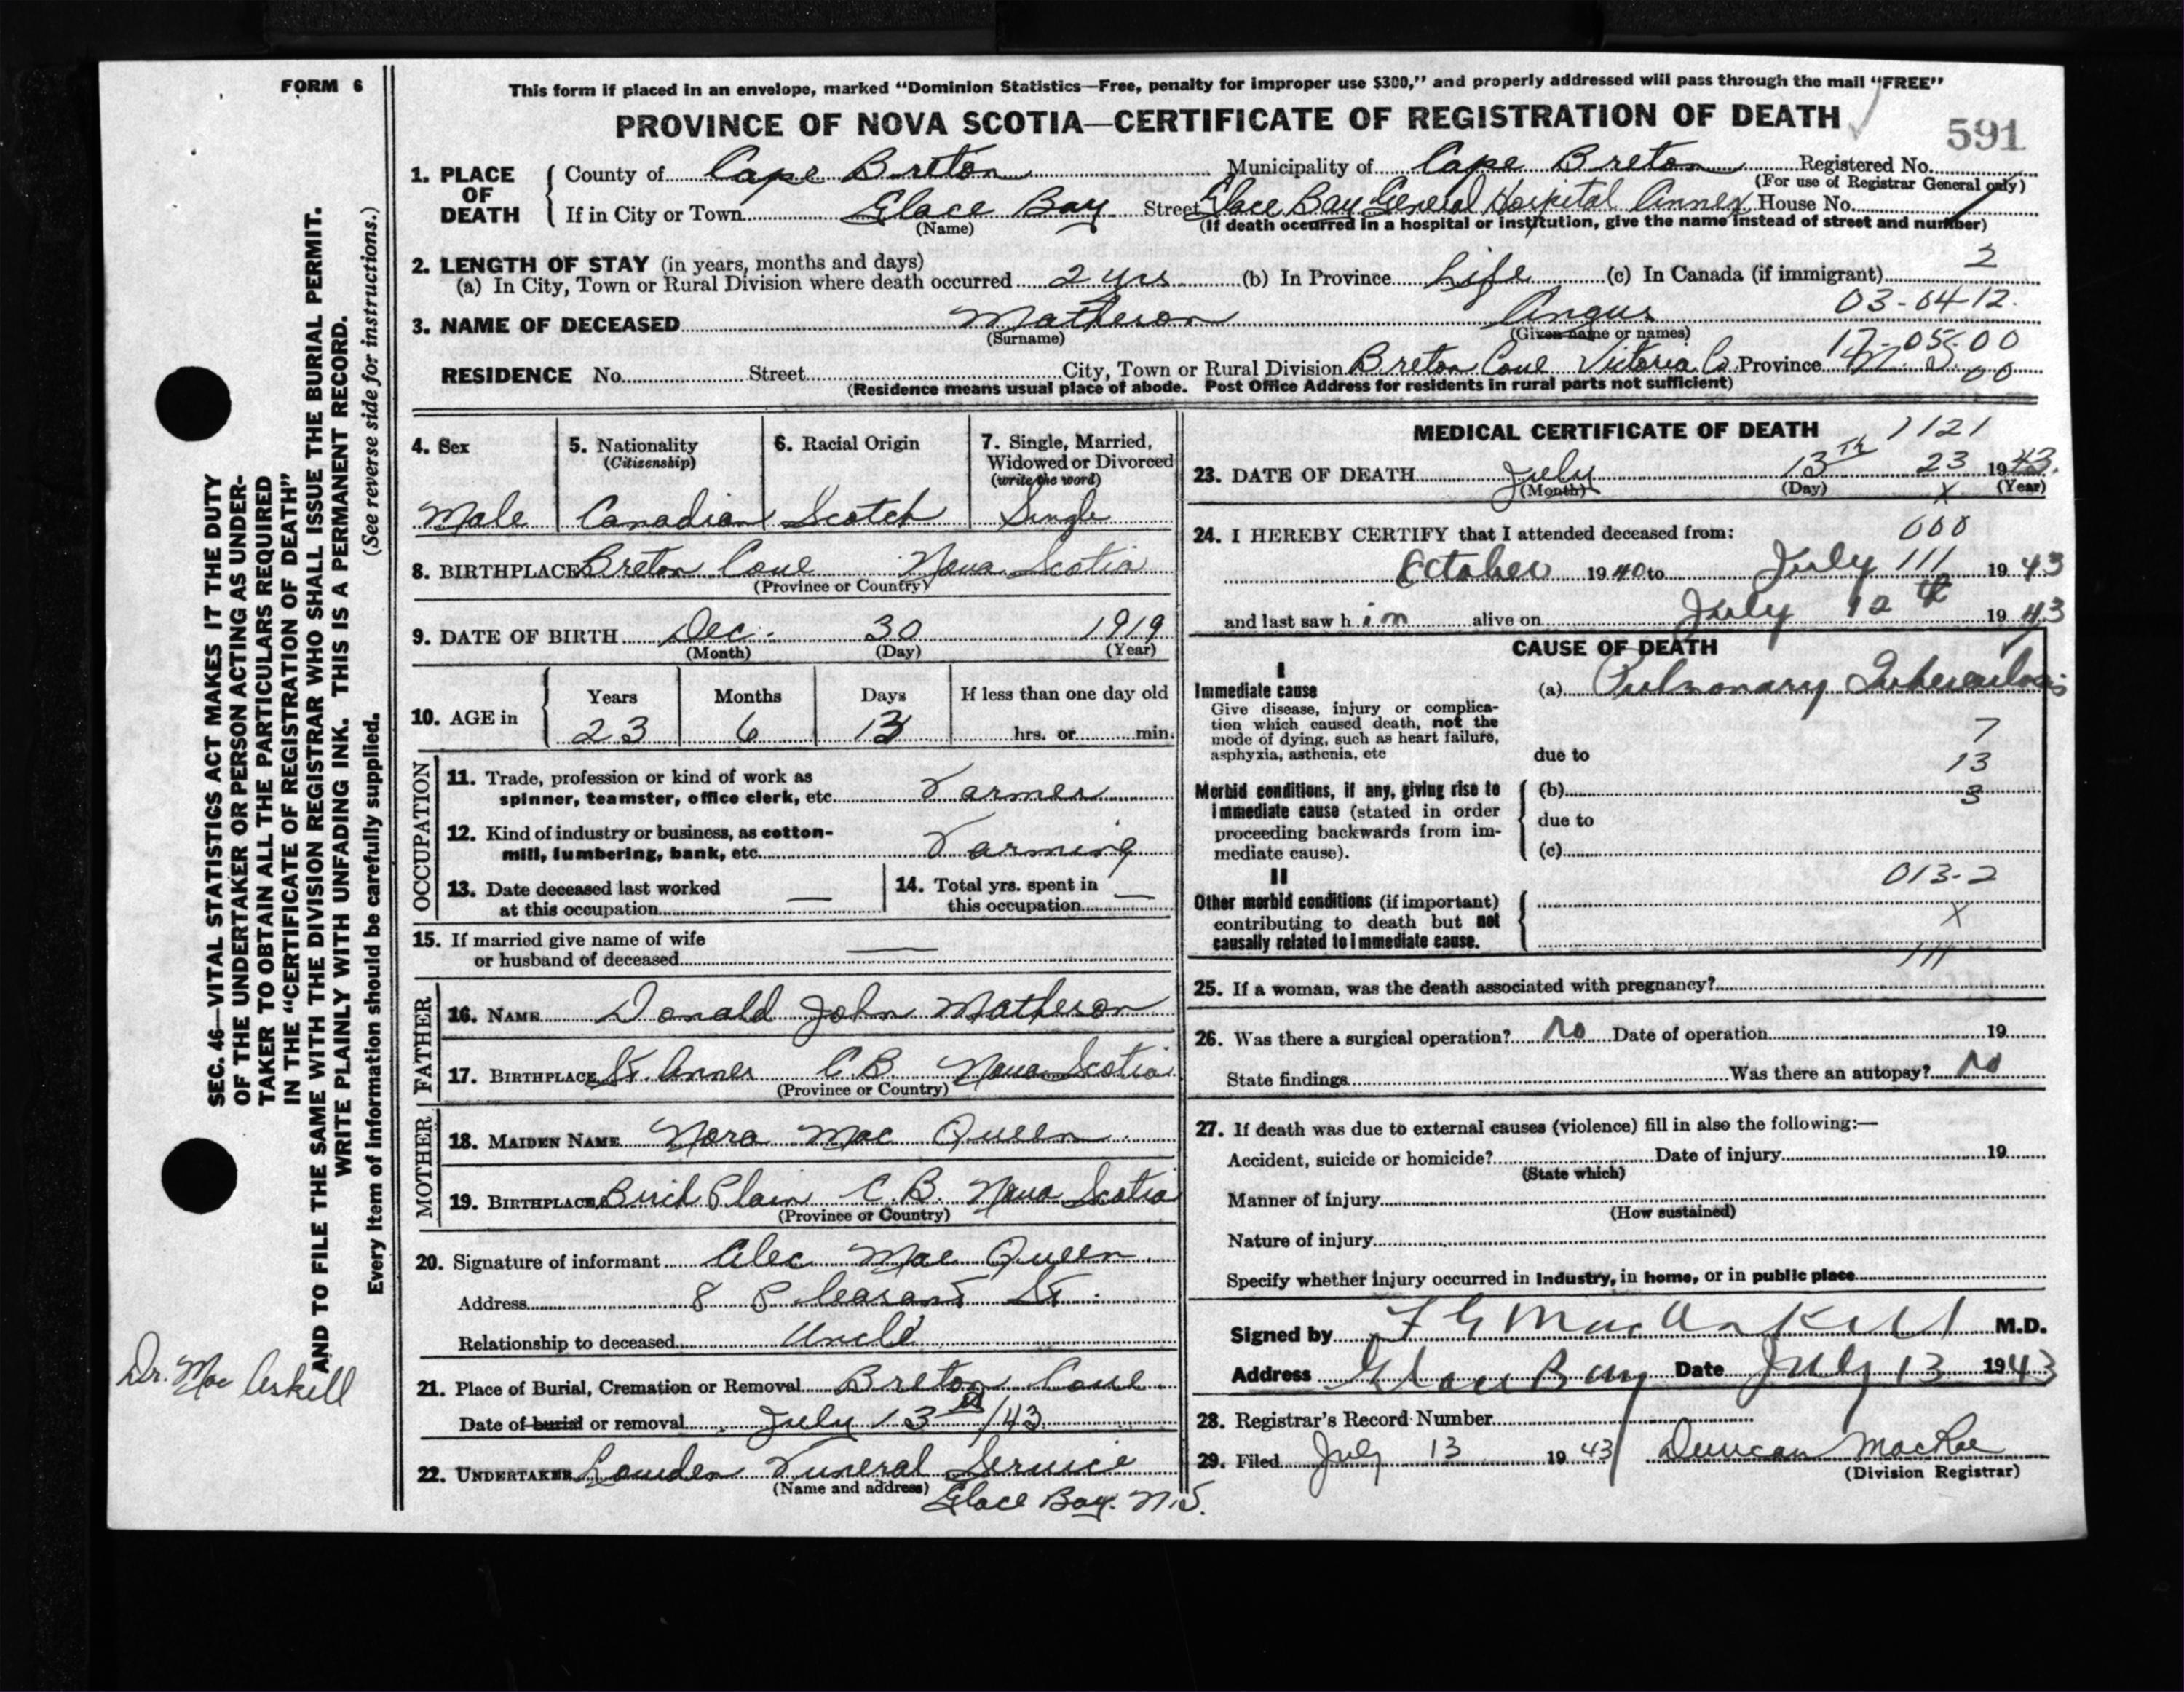 FORM 6
This form if placed in an envelope, marked "Dominion Statistics—Free, penalty for improper use $300," and properly addressed will pass through the mail "FREE"
PROVINCE OF NOVA SCOTIA—CERTIFICATE OF REGISTRATION OF DEATH
591
1. PLACE OF DEATH
County of Cape Breton Municipality of Cape Breton Registered No.
(For use of Registrar General only)
If in City or Town Glace Bay Street Glace Bay General Hospital Annex House No.
(Name) (If death occurred in a hospital or institution, give the name instead of street and number)
2. LENGTH OF STAY (in years, months and days) 2
(a) In City, Town or Rural Division where death occurred 2 yrs (b) In Province Life (c) In Canada (if immigrant)
03-04-12.
3. NAME OF DECEASED Matheson Angus
(Surname) (Given name or names)
17-05-00
RESIDENCE No. Street City, Town or Rural Division Breton Cove Victoria Co. Province N.S. 00
(Residence means usual place of abode. Post Office Address for residents in rural parts not sufficient)
4. Sex
5. Nationality
(Citizenship)
6. Racial Origin
7. Single, Married, Widowed or Divorced
(write the word)
Male Canadian Scotch Single
8. BIRTHPLACE Breton Cove Nova Scotia
(Province or Country)
9. DATE OF BIRTH Dec. 30 1919
(Month) (Day) (Year)
10. AGE in
Years Months Days If less than one day old
23 6 13 hrs. or min.
OCCUPATION
11. Trade, profession or kind of work as
spinner, teamster, office clerk, etc. Farmer
12. Kind of industry or business, as cotton-
mill, lumbering, bank, etc. Farming
13. Date deceased last worked
at this occupation —
14. Total yrs. spent in
this occupation —
15. If married give name of wife
or husband of deceased —
FATHER
16. NAME Donald John Matheson
17. BIRTHPLACE St. Annes C.B. Nova Scotia
(Province or Country)
MOTHER
18. MAIDEN NAME Nora Mac Queen
19. BIRTHPLACE Birch Plain C.B. Nova Scotia
(Province or Country)
20. Signature of informant Alec Mac Queen
Address 8 Pleasant St.
Relationship to deceased Uncle
21. Place of Burial, Cremation or Removal Breton Cove
Date of burial or removal July 13 /43
22. UNDERTAKER Lowden Funeral Service
(Name and address) Glace Bay. N.S.
MEDICAL CERTIFICATE OF DEATH 1121
23. DATE OF DEATH July 13th 23 1943.
(Month) (Day) X (Year)
24. I HEREBY CERTIFY that I attended deceased from: 000
October 1940 to July 111 1943
and last saw him alive on July 12th 1943
CAUSE OF DEATH
I
Immediate cause (a) Pulmonary Tuberculosis
Give disease, injury or complica-
tion which caused death, not the
mode of dying, such as heart failure,
asphyxia, asthenia, etc
7
due to
13
Morbid conditions, if any, giving rise to
immediate cause (stated in order
proceeding backwards from im-
mediate cause).
(b) 3
due to
(c)
013-2
II
Other morbid conditions (if important)
contributing to death but not
causally related to immediate cause.
X
111
25. If a woman, was the death associated with pregnancy?
26. Was there a surgical operation? No Date of operation 19
State findings Was there an autopsy? No
27. If death was due to external causes (violence) fill in also the following:—
Accident, suicide or homicide? Date of injury 19
(State which)
Manner of injury
(How sustained)
Nature of injury
Specify whether injury occurred in industry, in home, or in public place
Signed by F G MacAskill M.D.
Address Glace Bay Date July 13 1943
28. Registrar's Record Number
29. Filed July 13 1943 Duncan MacRae
(Division Registrar)
SEC. 46—VITAL STATISTICS ACT MAKES IT THE DUTY
OF THE UNDERTAKER OR PERSON ACTING AS UNDER-
TAKER TO OBTAIN ALL THE PARTICULARS REQUIRED
IN THE "CERTIFICATE OF REGISTRATION OF DEATH"
AND TO FILE THE SAME WITH THE DIVISION REGISTRAR WHO SHALL ISSUE THE BURIAL PERMIT.
WRITE PLAINLY WITH UNFADING INK. THIS IS A PERMANENT RECORD.
Every item of information should be carefully supplied. (See reverse side for instructions.)
Dr. Mac Askill